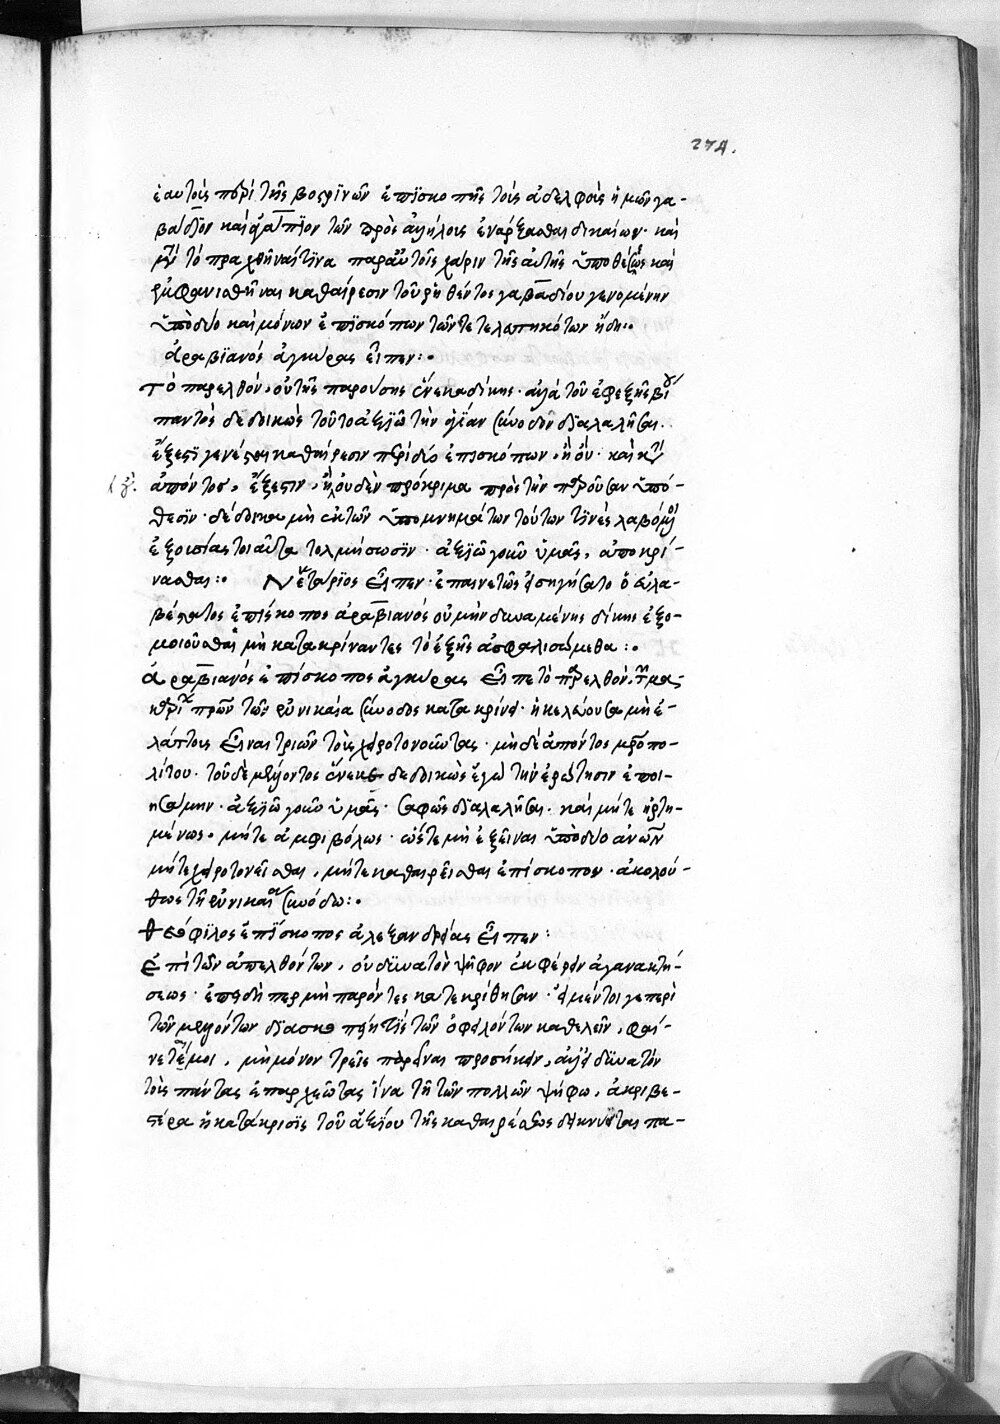 274.
ἑαυτοῖς περὶ τῆς βοσρϊνῶν ἐπϊσκοπῆς τοῖς ἀδελφοῖς ἡμῶν γα-
βαδϊον καὶ ἀγαπϊον τῶν πρὸς ἀλλήλοις ἐνάρξασθαι δικαίων· καὶ
μὴν τὸ πραχθῆναί τϊνα παρ' αὐτοῖς χάριν τῆς αὐτῆς ὑποθέσεως καὶ
ἐμφανισθῆναι καθαίρεσιν τοῦ ῥηθέντος γαβαδίου γενομένην
ὑπὸ δύο καὶ μόνων ἐπϊσκόπων τῶν τετελευτηκότων ἤδη:·
ἀραβϊανός ἀγκύρας εἶπεν:·
τὸ παρελθόν, οὐ τῆς παρούσης ἕνεκα δίκης· ἀλλὰ τοῦ ἐφεξῆς βίου
παντὸς δεδοικὼς τοῦτο ἀξιῶ τὴν ἁγίαν σύνοδον δϊαλαλῆσαι.
ἔξεστϊ γενέσθαι καθαίρεσιν παρὰ δύο ἐπισκόπων, ἢ οὔ· καὶ μη̅
ἀπόντος, ἔξεστιν, ἢ οὐδὲν πρόκριμα πρὸς τὴν παροῦσαν ὑπό-
θεσϊν· δέδοικα μὴ ἐκ τῶν ὑπομνημάτων τούτων τϊνὲς λαβόμενοι
ἐξουσίας τοιαῦτα τολμήσωσϊν· ἀξϊῶ γοῦν ὑμᾶς, ἀποκρί-
νασθαι:· Νεκτάρϊος εἶπεν· ἐπαινετῶς εἰσηγήσατο ὁ εὐλα-
βέστατος ἐπίσκοπος ἀραβιανός οὐ μὴν δυναμένης δίκης ἐξο-
μοιοῦσθαι μὴ κατακρίναντες τὸ ἑξῆς ἀσφαλισώμεθα:·
ἀραβιανός ἐπίσκοπος ἀγκύρας εἶπε τὸ παρελθόν, ἡμᾶς
πρῶν τῶν ἐν νικαία σύνοδος κατακρίνει· ἡ κελεύουσα μὴ ἐ-
λάττοις εἶναι τριῶν τοὺς χειροτονοῦντας· μὴ δὲ ἀπόντος μητροπο-
λίτου· τοῦ δὲ μέλλοντος ἕνεκεν δεδοικὼς ἐγὼ τὴν ἐρώτησιν ἐποι-
ησάμην· ἀξιῶ γοῦν ὑμᾶς· σαφῶς δϊαλαλῆσαι· καὶ μήτε ἠρτη-
μένως, μήτε ἀμφιβόλως· ὥστε μὴ ἐξεῖναι ὑπὸ δύο ἀνων
μήτε χειροτονεῖσθαι, μήτε καθαιρεῖσθαι ἐπίσκοπον· ἀκολού-
θως τῇ ἐν νικαίᾳ συνόδω:·
θεόφϊλος ἐπϊσκοπος ἀλεξανδρείας εἶπεν:
ἐπὶ τῶν ἀπελθόντων, οὐ δϋνατὸν ψῆφον ἐκφέρειν ἀγανακτή-
σεως· ἐπειδήπερ μὴ παρόντες κατεκρίθησαν· εἰ μέντοι γε περὶ
τῶν μελλόντων δϊασκοπείη τὶς τῶν ὀφειλόντων καθελεῖν, φαί-
νεταί μοι, μὴ μόνον τρεῖς παρεῖναι προσήκειν, ἀλλ' εἰ δϋνατόν
τοὺς πάντας ἐπαρχεώτας ἵνα τῇ τῶν πολλῶν ψήφω, ἀκριβε-
στέρα ἡ κατάκρισϊς τοῦ ἀξίου τῆς καθαιρέσεως δεικνύηται πα-